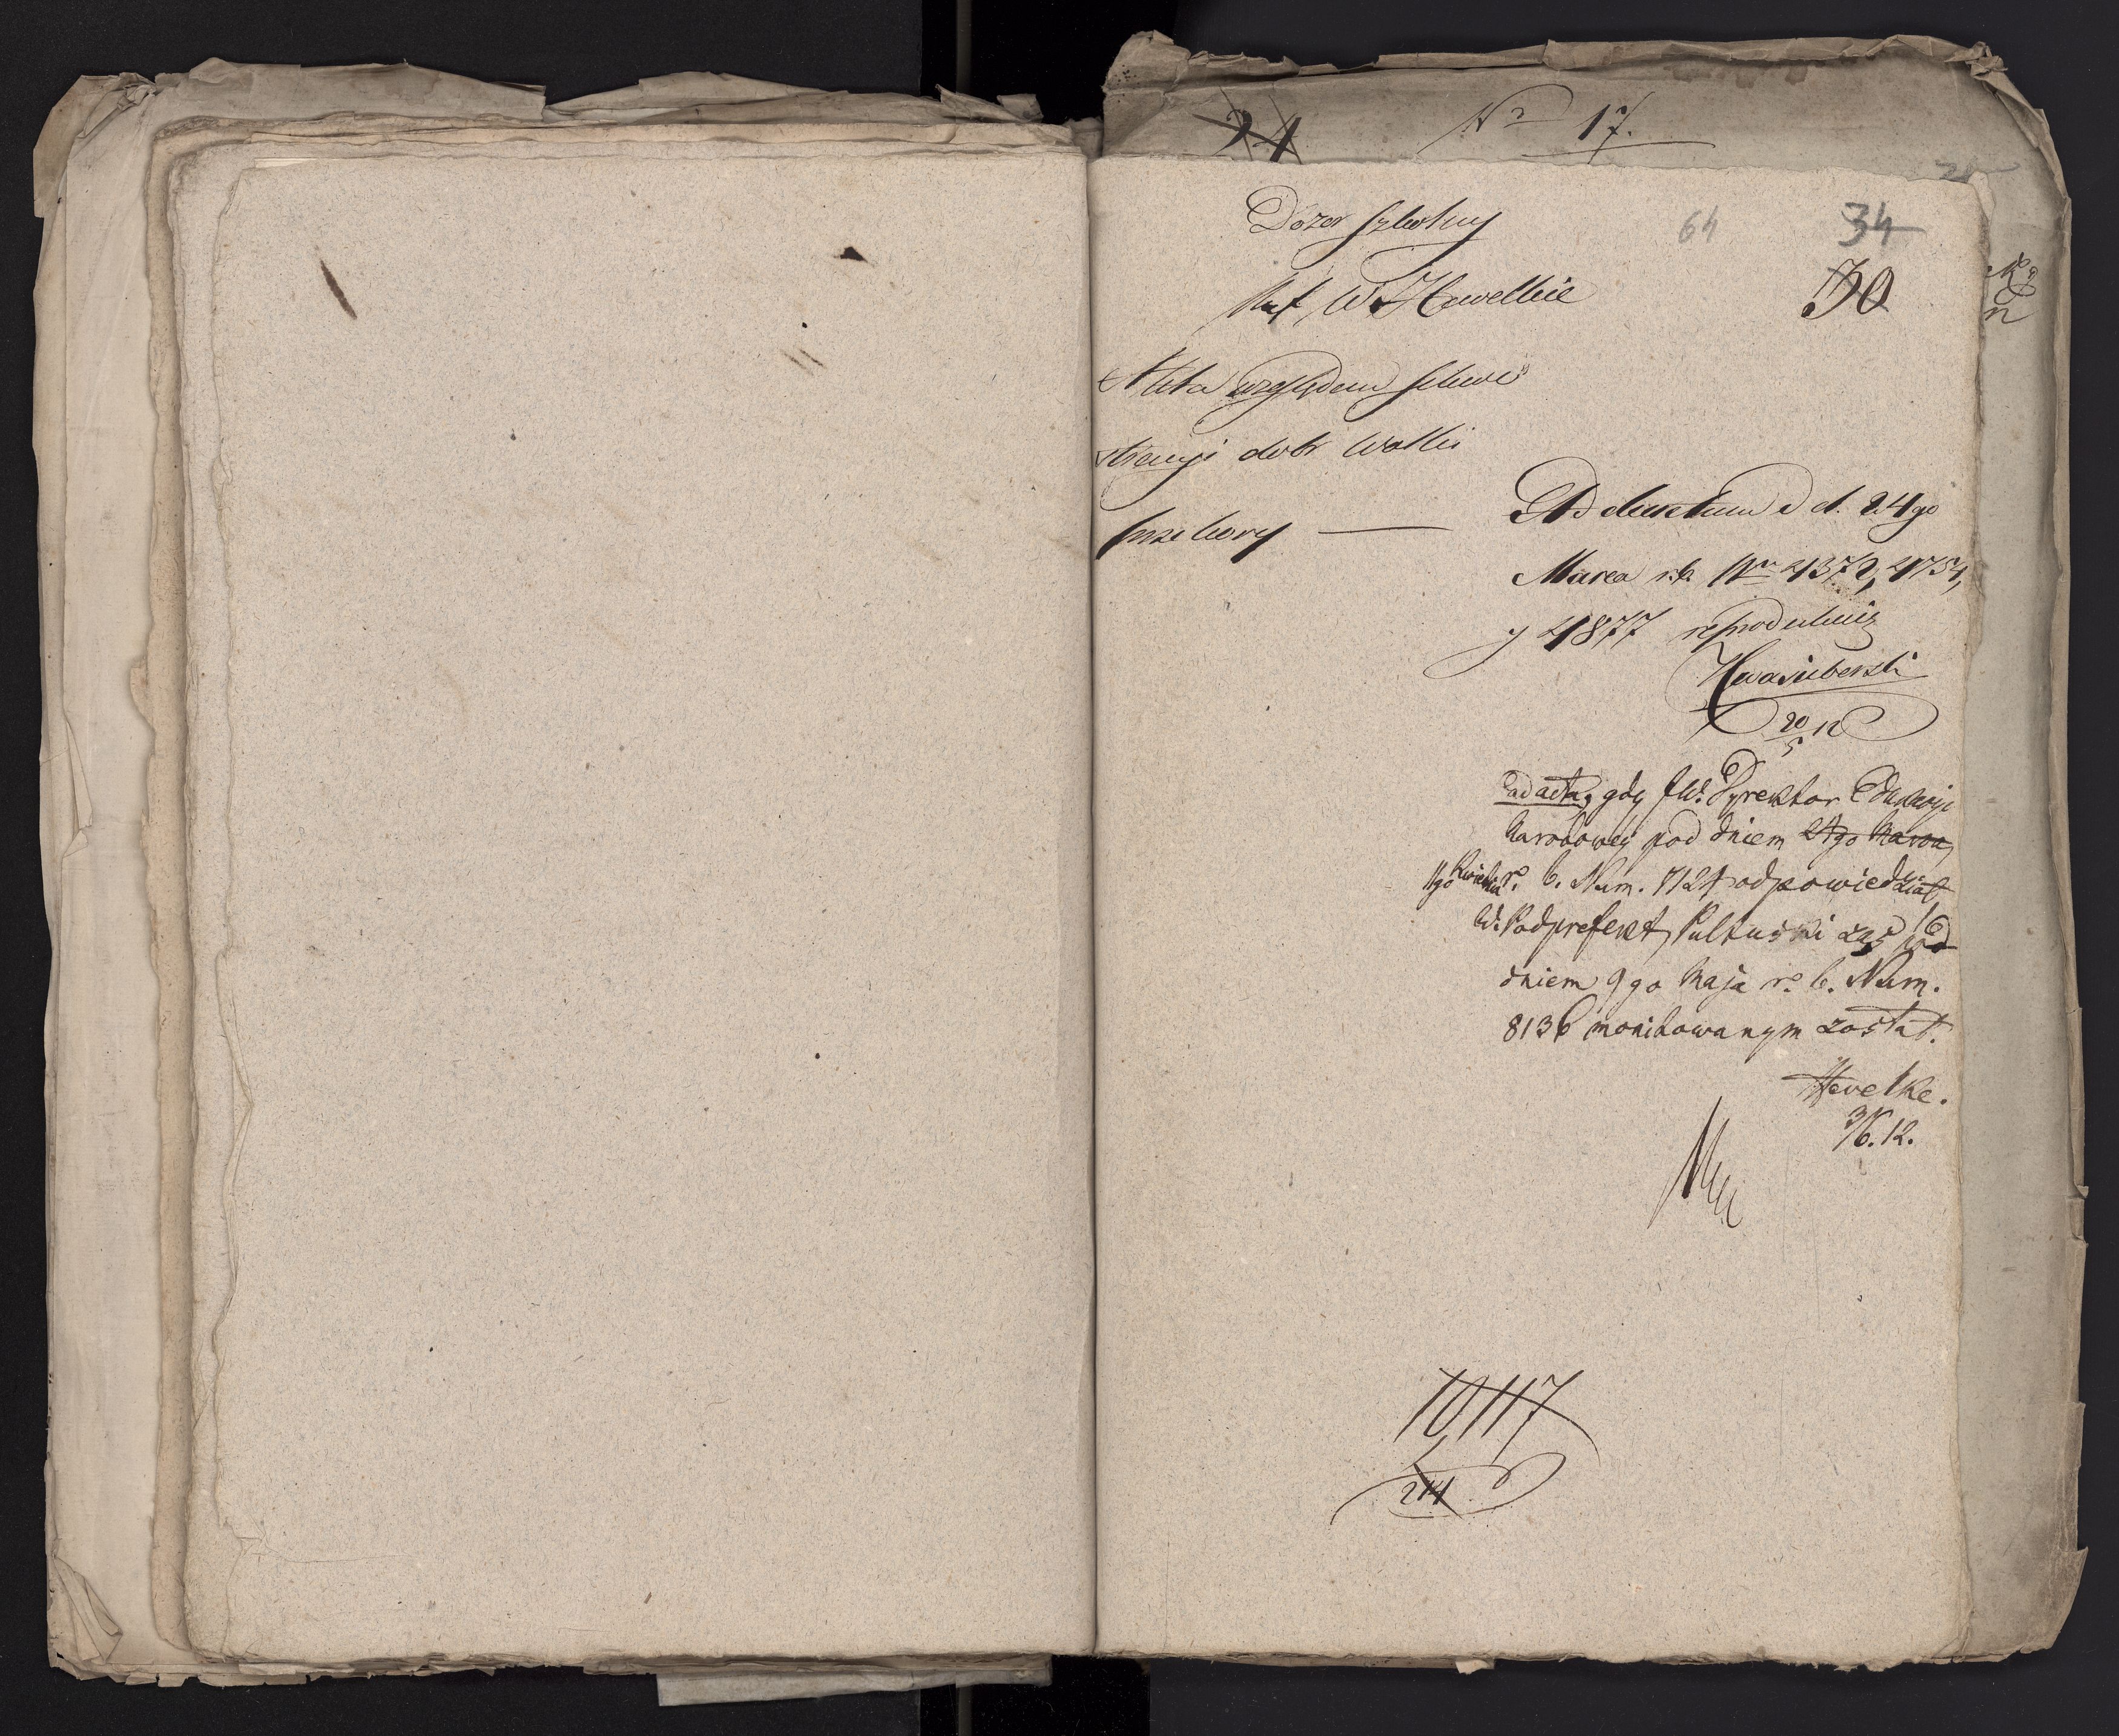 24 Nro 17.
64 34
Dozor Szkolny
30
Ref W Hewelkie
Akta względem sekwe
stracyi dobr Wolki
przekory —
Ad decretum d d. 24go
Marca r.b. Nro 4372, 4754,
y 4877 reprodukuię
Kwasieborski
20/5 12
ad acta, gdy JW. Dyrektor Edukacyi
Narodowey pod dniem 24go Marca
11go Kwietnia r. b. Num. 7124 odpowiedział
W. Podprefekt Pułtuski zaś pod
dniem 9go Maja r. b. Num.
8136 monitowanym został.
Hevelke.
3/6. 12.
10,117
214